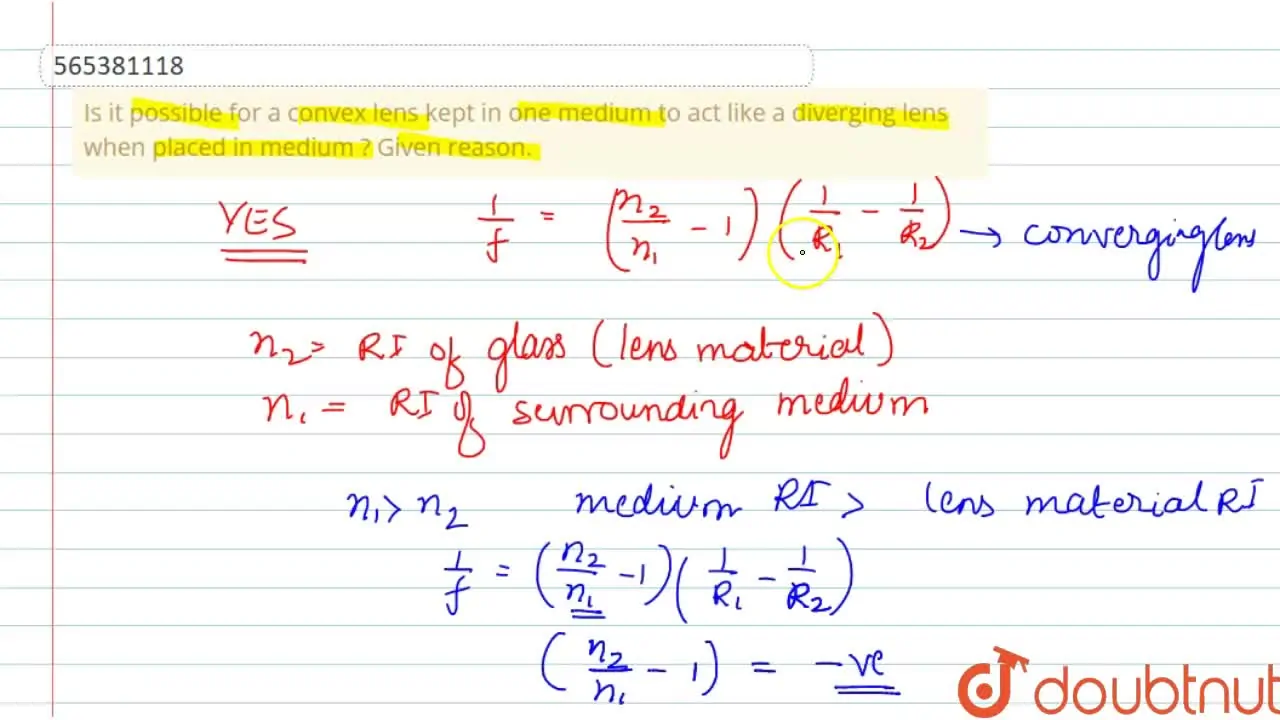 565381118
Is it possible for a convex lens kept in one medium to act like a diverging lens
when placed in medium ? Given reason.
YES 1/f = (n₂/n₁ - 1) (1/R₁ - 1/R₂) → converging lens
n₂ = RI of glass (lens material)
n₁ = RI of surrounding medium
n₁ > n₂ medium RI > lens material RI
1/f = (n₂/n₁ - 1) (1/R₁ - 1/R₂)
(n₂/n₁ - 1) = -ve
doubtnut